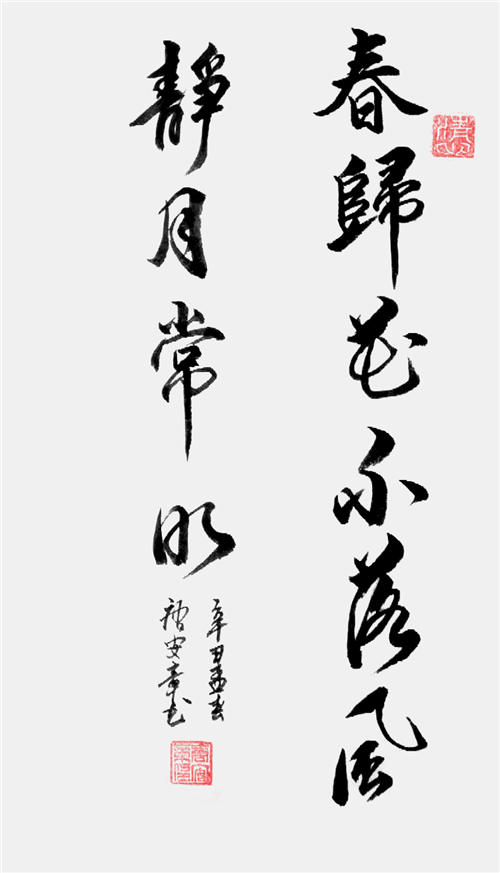 春歸花不落風
靜月常明
辛丑孟春